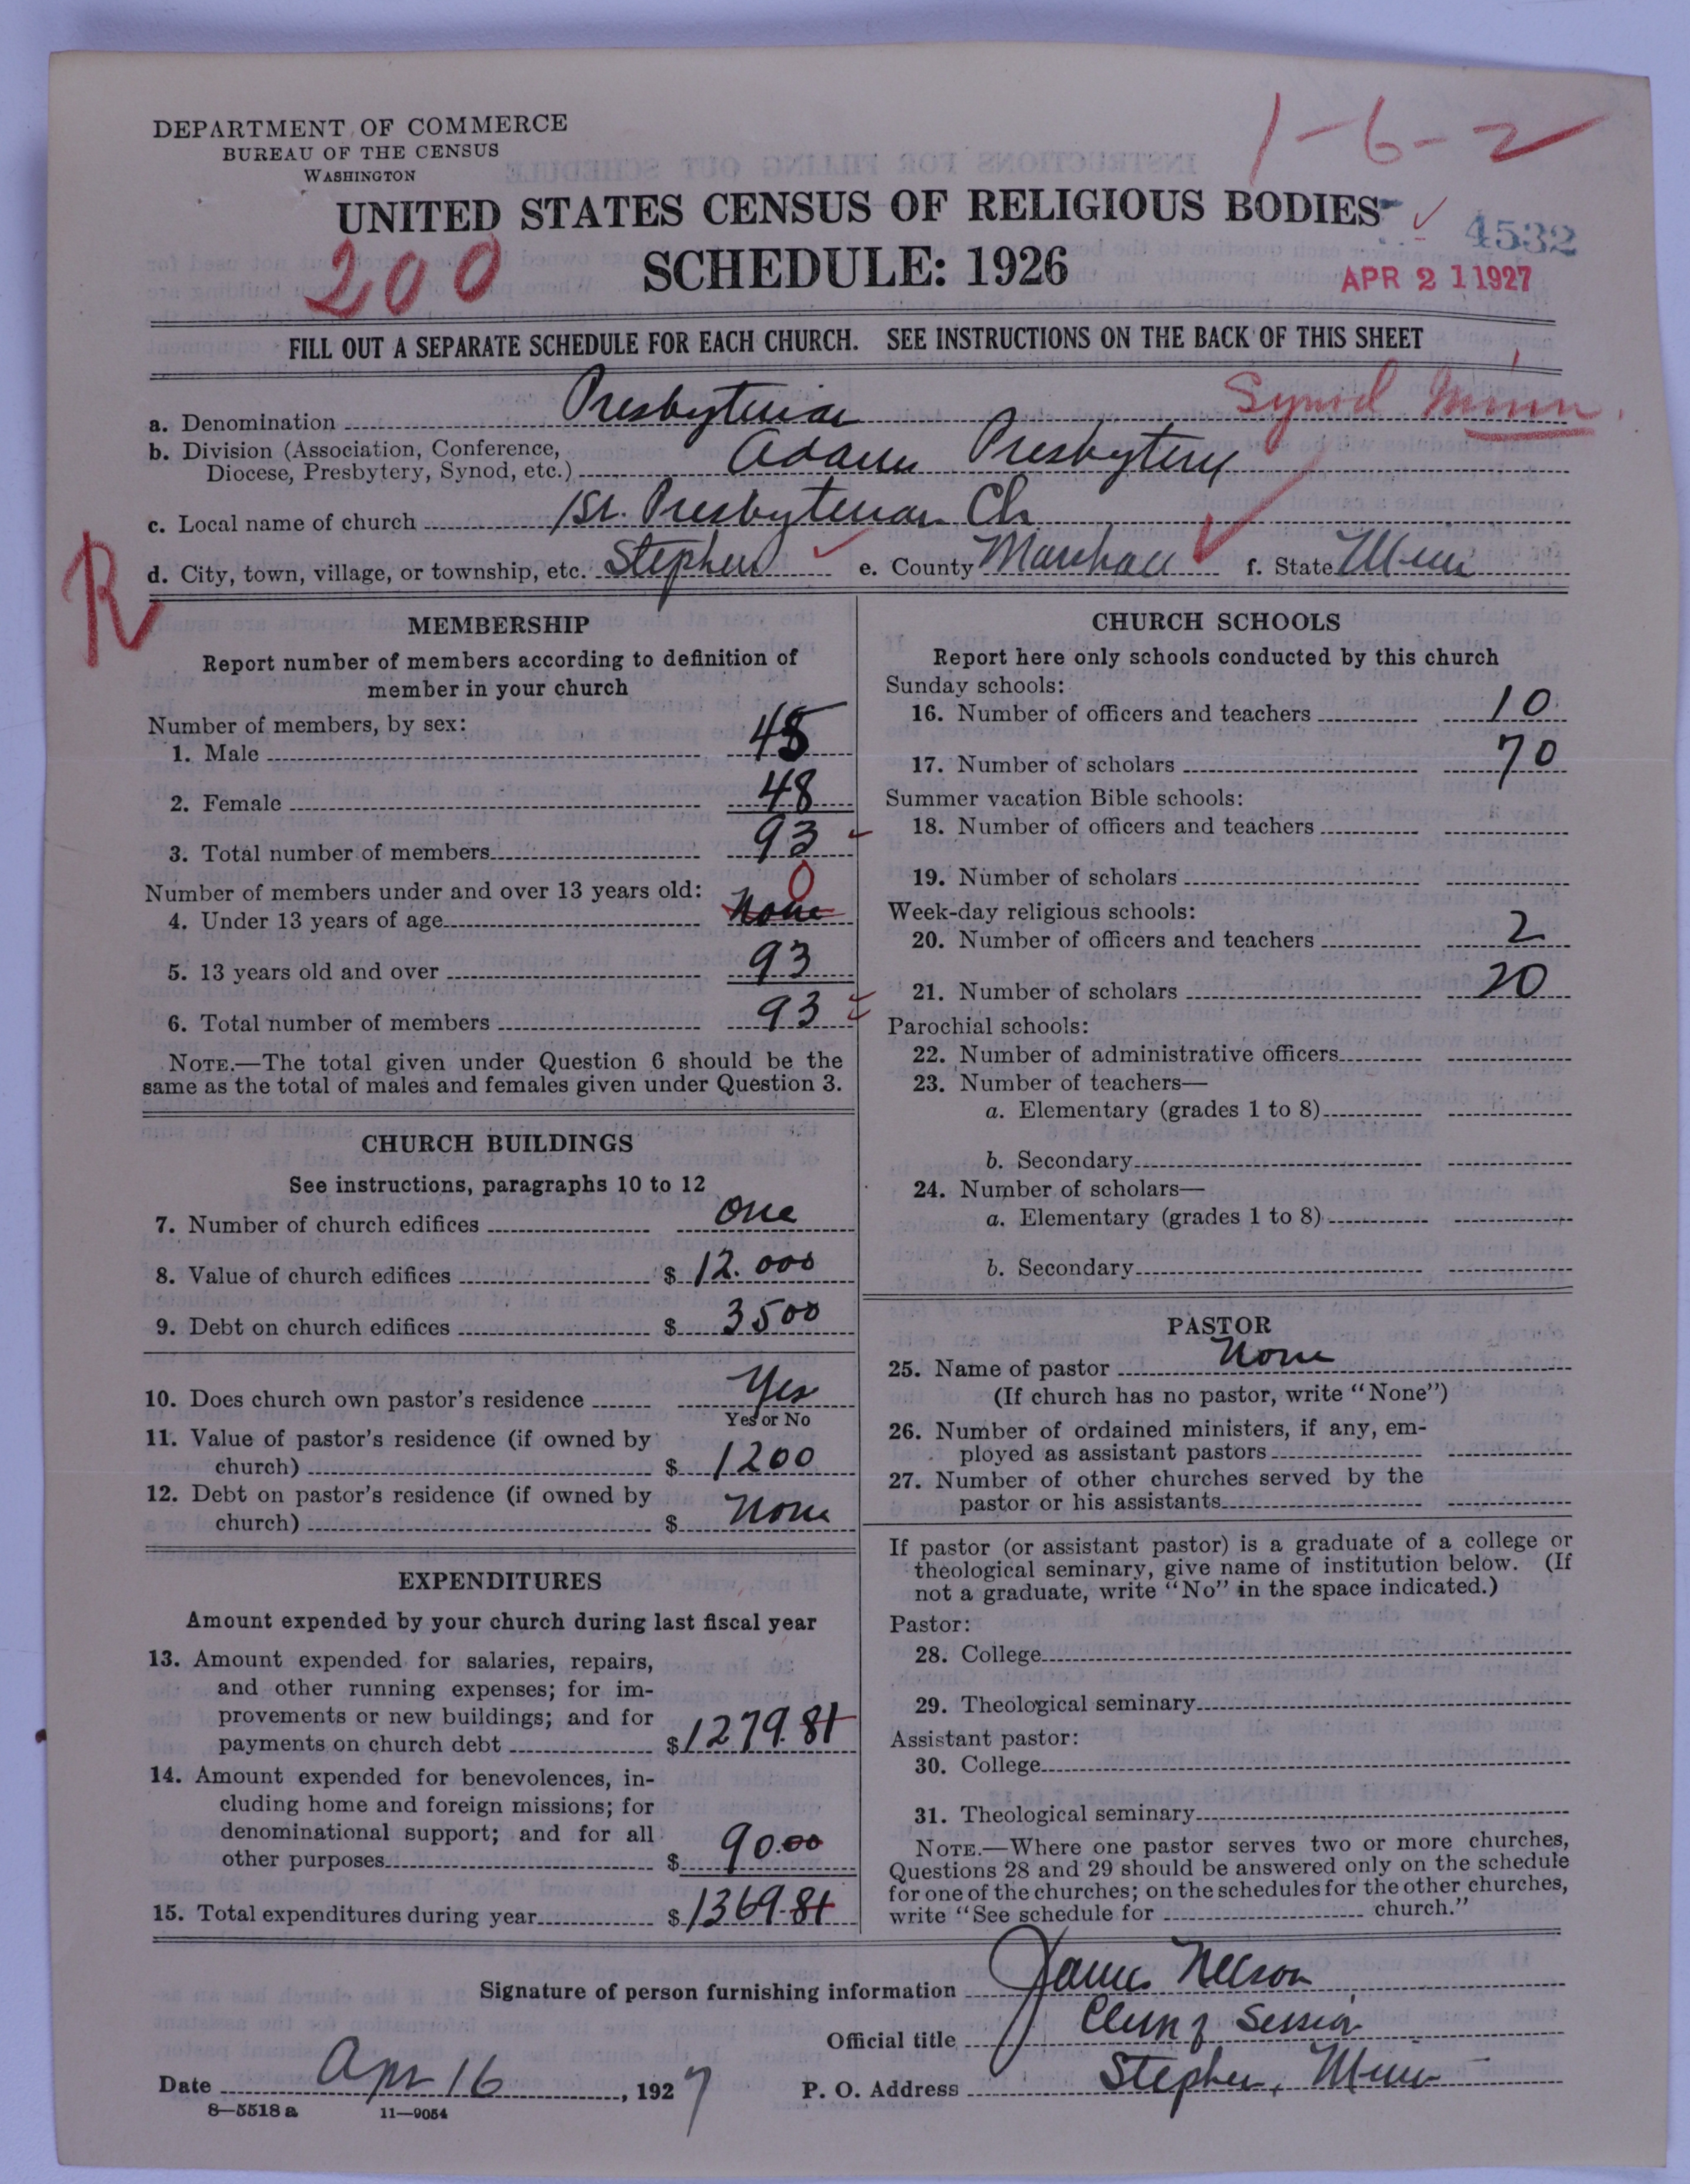 DEPARTMENT OF COMMERCE
BUREAU OF THE CENSUS
WASHINGTON
1-6-2
UNITED STATES CENSUS OF RELIGIOUS BODIES
4532
200
SCHEDULE: 1926
APR 21 1927
FILL OUT A SEPARATE SCHEDULE FOR EACH CHURCH. SEE INSTRUCTIONS ON THE BACK OF THIS SHEET
Synod Minn.
a. Denomination Presbyterian
b. Division (Association, Conference, Diocese, Presbytery, Synod, etc.) Adams Presbytery
c. Local name of church 1st. Presbyterian Ch
R
d. City, town, village, or township, etc. Stephen e. County Marshall f. State Minn
MEMBERSHIP
Report number of members according to definition of
member in your church
Number of members, by sex:
1. Male 45
2. Female 48
3. Total number of members 93
Number of members under and over 13 years old:
0
4. Under 13 years of age None
5. 13 years old and over 93
6. Total number of members 93
NOTE.—The total given under Question 6 should be the
same as the total of males and females given under Question 3.
CHURCH BUILDINGS
See instructions, paragraphs 10 to 12
7. Number of church edifices One
8. Value of church edifices $ 12.000
9. Debt on church edifices $ 3500
10. Does church own pastor's residence Yes
Yes or No
11. Value of pastor's residence (if owned by
church) $ 1200
12. Debt on pastor's residence (if owned by
church) $ None
EXPENDITURES
Amount expended by your church during last fiscal year
13. Amount expended for salaries, repairs,
and other running expenses; for im-
provements or new buildings; and for
payments on church debt $ 1279.81
14. Amount expended for benevolences, in-
cluding home and foreign missions; for
denominational support; and for all
other purposes $ 90.00
15. Total expenditures during year $ 1369.81
CHURCH SCHOOLS
Report here only schools conducted by this church
Sunday schools:
16. Number of officers and teachers 10
17. Number of scholars 70
Summer vacation Bible schools:
18. Number of officers and teachers
19. Number of scholars
Week-day religious schools:
20. Number of officers and teachers 2
21. Number of scholars 20
Parochial schools:
22. Number of administrative officers
23. Number of teachers—
a. Elementary (grades 1 to 8)
b. Secondary
24. Number of scholars—
a. Elementary (grades 1 to 8)
b. Secondary
PASTOR
25. Name of pastor None
(If church has no pastor, write "None")
26. Number of ordained ministers, if any, em-
ployed as assistant pastors
27. Number of other churches served by the
pastor or his assistants
If pastor (or assistant pastor) is a graduate of a college or
theological seminary, give name of institution below. (If
not a graduate, write "No" in the space indicated.)
Pastor:
28. College
29. Theological seminary
Assistant pastor:
30. College
31. Theological seminary
NOTE.—Where one pastor serves two or more churches,
Questions 28 and 29 should be answered only on the schedule
for one of the churches; on the schedules for the other churches,
write "See schedule for church."
Signature of person furnishing information James Nelson
Official title Clerk of Session
Date Apr 16, 1927 P. O. Address Stephen, Minn
8—5518 a 11—9054